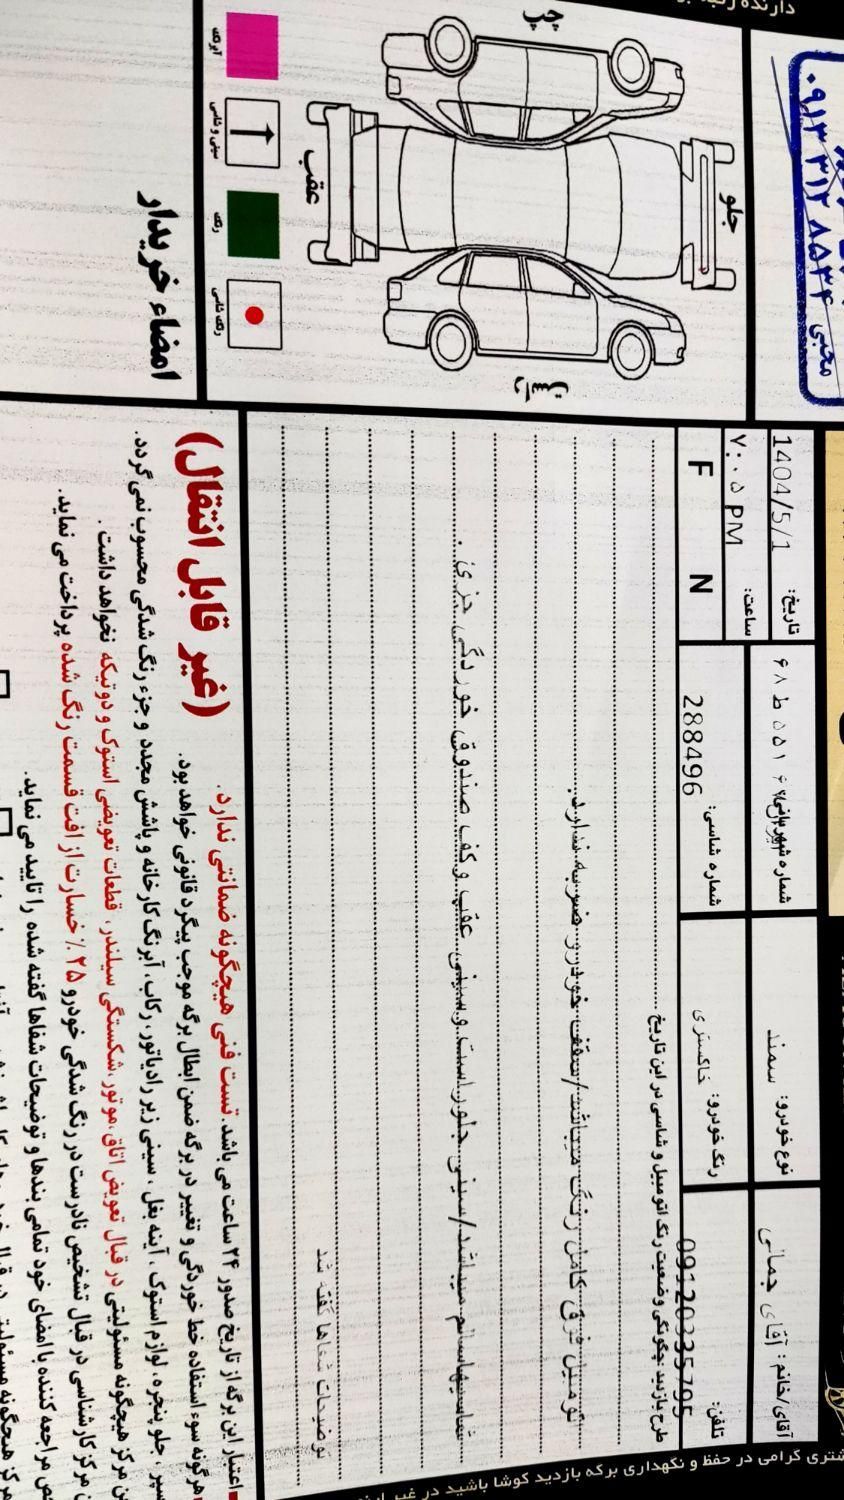 دارنده
۰۹۱۳ ۳۱۲ ۸۵۳۴
محبی
چپ
جلو
عقب
راست
آبرنگ
سینی و شاسی
رنگ
رنگ شاسی
امضاء خریدار
آقای/خانم: آقای جمالی
نوع خودرو: سمند
شماره شهربانی: ۶۸ ط ۵۵۱
تاریخ: 1404/5/1
ساعت: ۷:۰۵ PM
تلفن: 09120335795
رنگ خودرو: خاکستری
شماره شاسی: 288496
N F
طرح بازدید: چگونگی وضعیت رنگ اتومبیل و شاسی در این تاریخ
تومبیل فوق کامل رنگ میباشد/سقف خودرو ضربه ندارد.
شاسیهاسالم میباشد/سینی جلوراست و سینی عقب وکف صندوق خوردگی جزئی .
توضیحات شفاها گفته شد
اعتبار این برگه از تاریخ صدور ۲۴ ساعت می باشد. تست فنی هیچگونه ضمانتی ندارد. (غیر قابل انتقال)
هرگونه سوء استفاده خط خوردگی و تغییر در برگه ضمن ابطال برگه موجب پیگرد قانونی خواهد بود.
سپر ، جلو پنجره ، لوازم استوک ، آینه بغل ، سینی زیر رادیاتور، رکاب، آبرنگ کارخانه و پاشش مجدد و جزء رنگ شدگی محسوب نمی گردد.
مرکز هیچگونه مسئولیتی در قبال تعویض اتاق ،موتور،شکستگی سیلندر، قطعات تعویضی استوک و دوتیکه نخواهد داشت .
مرکز کارشناسی در قبال تشخیص نادرست در رنگ شدگی خودرو ۲۵ ٪ خسارت از افت قسمت رنگ شده پرداخت می نماید.
مراجعه کننده با امضای خود تمامی بندها و توضیحات شفاها گفته شده را تایید می نماید.
مشتری گرامی در حفظ و نگهداری برگه بازدید کوشا باشید در غیر